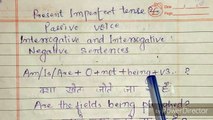 Present Imperfect tense
Passive voice
Interrogative and Interrogative
Negative Sentences
Am/Is/Are + O + not + being + V3. ?
क्या खेत जोते जा रहे हैं ?
Are the fields being ploughed?
PowerDirector